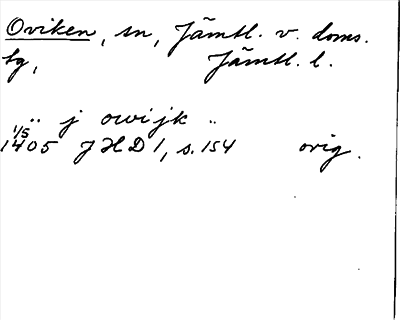 Oviken, sn, Jämtl. v. doms.
tg, Jämtl. l.
" j owijk "
1/5
1405 JHD 1, s. 154 orig.